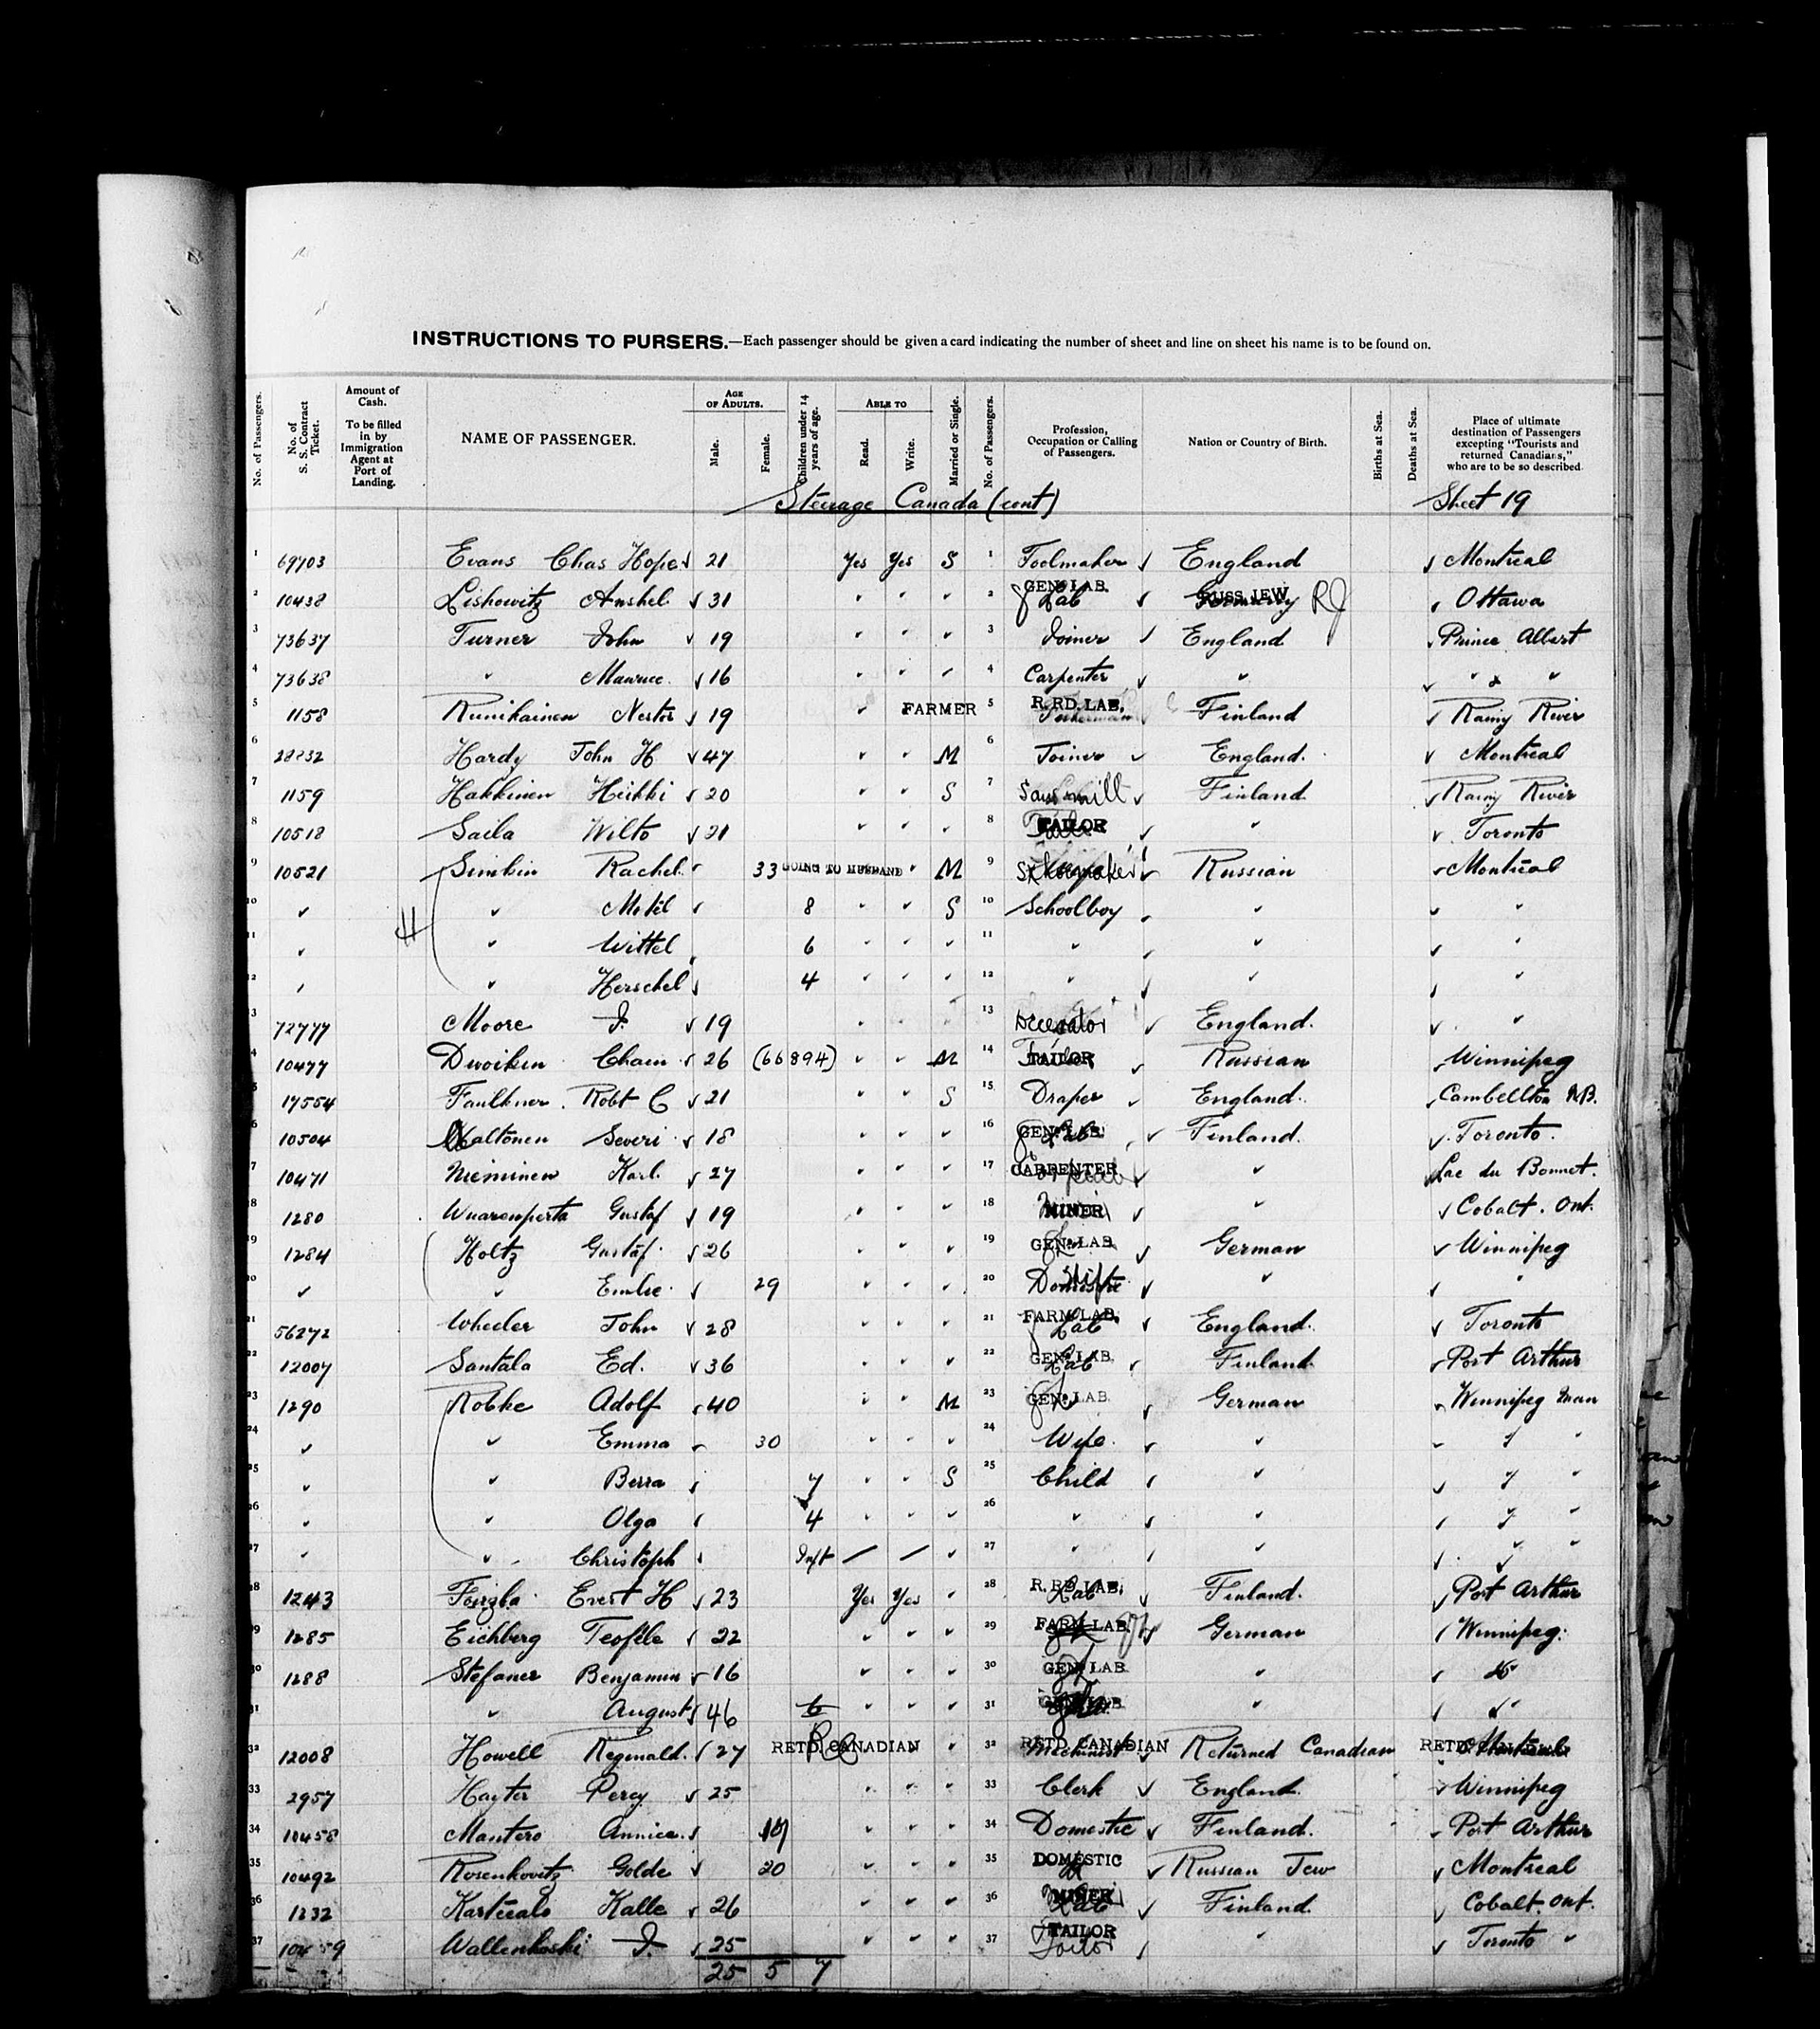 INSTRUCTIONS TO PURSERS.—Each passenger should be given a card indicating the number of sheet and line on sheet his name is to be found on.
No. of Passengers. No. of S. S. Contract Ticket. Amount of Cash. To be filled in by Immigration Agent at Port of Landing. NAME OF PASSENGER. AGE OF ADULTS. Male. Female. Children under 14 years of age. ABLE TO Read. Write. Married or Single. No. of Passengers. Profession, Occupation or Calling of Passengers. Nation or Country of Birth. Births at Sea. Deaths at Sea. Place of ultimate destination of Passengers excepting "Tourists and returned Canadians," who are to be so described
Steerage Canada (cont) Sheet 19
1 69703 Evans Chas Hope 21 Yes Yes S 1 Toolmaker England Montreal
2 10438 Lishowitz Anshel 31 " " " 2 GEN. LAB. Lab RUSS. JEW RJ Ottawa
3 73637 Turner John 19 " " " 3 Joiner England Prince Albert
4 73638 " Maurice 16 " " " 4 Carpenter " " "
5 1158 Runikainen Nestor 19 " FARMER 5 R. RD. LAB. Finland Rainy River
6 28832 Hardy John H 47 " " M 6 Joiner England. Montreal
7 1159 Hakkinen Heikki 20 " " S 7 Saw mill Finland Rainy River
8 10518 Saila Wilto 21 " " " 8 TAILOR " Toronto
9 10521 Simkin Rachel 33 GOING TO HUSBAND " M 9 Russian Montreal
10 " " Motel 8 " " S 10 Schoolboy " " "
11 " " Wittel 6 " " " 11 " " "
12 " " Herschel 4 " " " 12 " " "
13 72777 Moore J. 19 " 13 Decorator England. "
14 10477 Dwoiken Chaim 26 (66894) " " M 14 TAILOR Russian Winnipeg
15 17554 Faulkner Robt C 21 " " S 15 Draper England. Cambellton N.B.
16 10504 Waltonen Severi 18 " " " 16 GEN. LAB. Lab Finland. Toronto.
17 10471 Nieminen Karl 27 " " " 17 CARPENTER " Lac du Bonnet.
18 1280 Gustaf 19 " " " 18 MINER " Cobalt. Ont.
19 1284 Holtz Gustaf 26 " " " 19 GEN. LAB. German Winnipeg
20 " " Emlie 29 " " " 20 Domestic Wife " "
21 56272 Wheeler John 28 " " " 21 FARM LAB. Lab England. Toronto
22 12007 Santala Ed. 36 " " " 22 GEN. LAB. Lab Finland. Port Arthur
23 1290 Robke Adolf 40 " " M 23 GEN. LAB. German Winnipeg Man
24 " " Emma 30 " " " 24 Wife " " "
25 " " Berra 7 " " S 25 Child " " "
26 " " Olga 4 " " " 26 " " " "
27 " " Christoph Inft / / " 27 " " " "
28 1243 Evert H 23 Yes Yes " 28 R. RD. LAB. Lab Finland. Port Arthur
29 1285 Eichberg Teofile 22 " " " 29 FARM LAB. German Winnipeg.
30 1288 Stefaner Benjamin 16 " " " 30 GEN. LAB. " "
31 " August 46 6 " " " 31 GEN. LAB. " "
32 12008 Howell Reginald. 27 RETD. CANADIAN RC " 32 RETD. CANADIAN Machinist Returned Canadian RETD. CANADIAN Montreal
33 2957 Hayter Percy 25 " " " 33 Clerk England. Winnipeg
34 10458 Mantero Annica 19 " " " 34 Domestic Finland. Port Arthur
35 10492 Rosenkovitz Golde 20 " " " 35 DOMESTIC Russian Jew Montreal
36 1232 Kartualo Kalle 26 " " " 36 MINER Lab Finland. Cobalt. Ont.
37 Wallenkoski J. 25 " " " 37 TAILOR Tailor " Toronto "
25 5 7